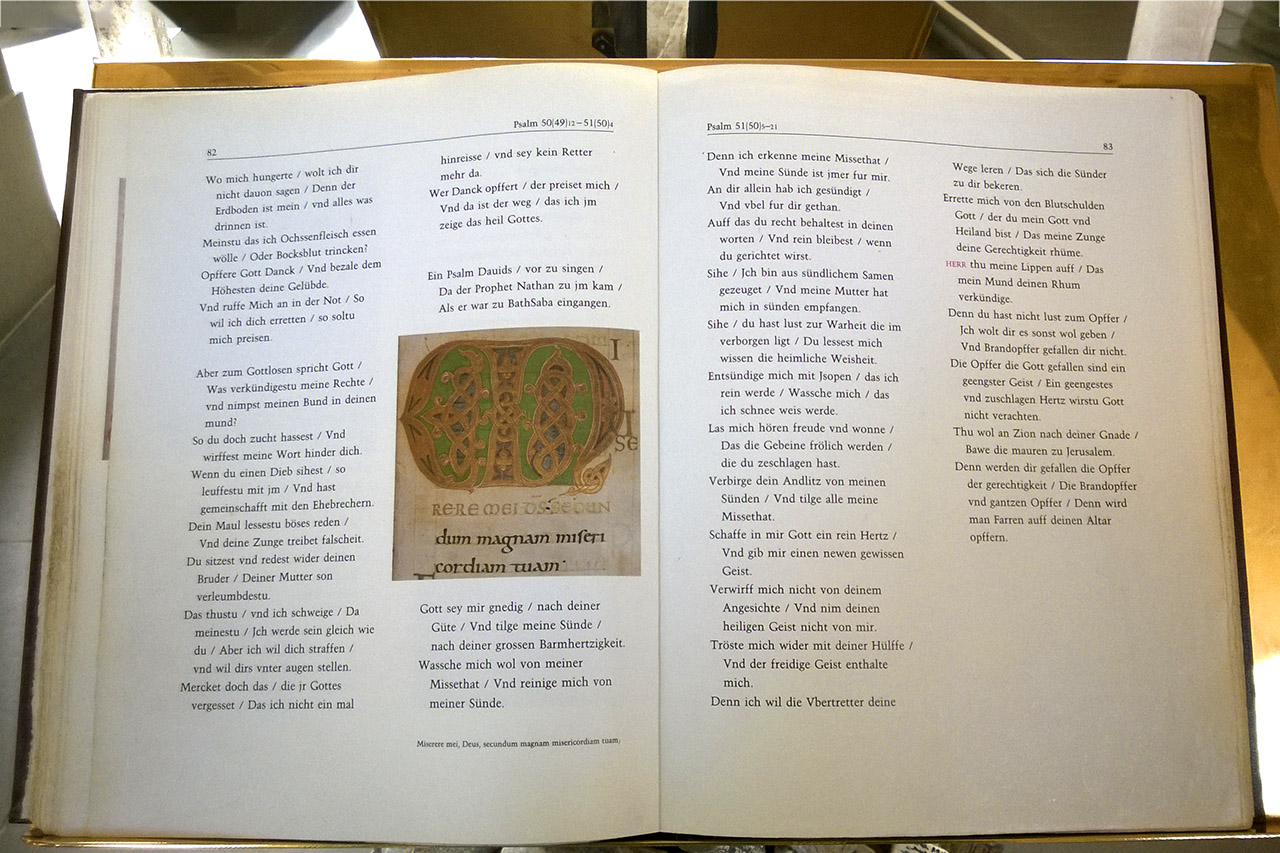 82
Psalm 50(49)12–51(50)4
Wo mich hungerte / wolt ich dir
nicht dauon sagen / Denn der
Erdboden ist mein / vnd alles was
drinnen ist.
Meinstu das ich Ochssenfleisch essen
wölle / Oder Bocksblut trincken?
Opffere Gott Danck / Vnd bezale dem
Höhesten deine Gelübde.
Vnd ruffe Mich an in der Not / So
wil ich dich erretten / so soltu
mich preisen.
Aber zum Gottlosen spricht Gott /
Was verkündigestu meine Rechte /
vnd nimpst meinen Bund in deinen
mund?
So du doch zucht hassest / Vnd
wirffest meine Wort hinder dich.
Wenn du einen Dieb sihest / so
leuffestu mit jm / Vnd hast
gemeinschafft mit den Ehebrechern.
Dein Maul lessestu böses reden /
Vnd deine Zunge treibet falscheit.
Du sitzest vnd redest wider deinen
Bruder / Deiner Mutter son
verleumbdestu.
Das thustu / vnd ich schweige / Da
meinestu / Jch werde sein gleich wie
du / Aber ich wil dich straffen /
vnd wil dirs vnter augen stellen.
Mercket doch das / die jr Gottes
vergesset / Das ich nicht ein mal
hinreisse / vnd sey kein Retter
mehr da.
Wer Danck opffert / der preiset mich /
Vnd da ist der weg / das ich jm
zeige das heil Gottes.
Ein Psalm Dauids / vor zu singen /
Da der Prophet Nathan zu jm kam /
Als er war zu BathSaba eingangen.
M I
SE
RERE MEI DS SECUN
dum magnam miseri
cordiam tuam
Gott sey mir gnedig / nach deiner
Güte / Vnd tilge meine Sünde /
nach deiner grossen Barmhertzigkeit.
Wassche mich wol von meiner
Missethat / Vnd reinige mich von
meiner Sünde.
Miserere mei, Deus, secundum magnam misericordiam tuam;
Psalm 51(50)5–21
83
Denn ich erkenne meine Missethat /
Vnd meine Sünde ist jmer fur mir.
An dir allein hab ich gesündigt /
Vnd vbel fur dir gethan.
Auff das du recht behaltest in deinen
worten / Vnd rein bleibest / wenn
du gerichtet wirst.
Sihe / Jch bin aus sündlichem Samen
gezeuget / Vnd meine Mutter hat
mich in sünden empfangen.
Sihe / du hast lust zur Warheit die im
verborgen ligt / Du lessest mich
wissen die heimliche Weisheit.
Entsündige mich mit Jsopen / das ich
rein werde / Wassche mich / das
ich schnee weis werde.
Las mich hören freude vnd wonne /
Das die Gebeine frölich werden /
die du zeschlagen hast.
Verbirge dein Andlitz von meinen
Sünden / Vnd tilge alle meine
Missethat.
Schaffe in mir Gott ein rein Hertz /
Vnd gib mir einen newen gewissen
Geist.
Verwirff mich nicht von deinem
Angesichte / Vnd nim deinen
heiligen Geist nicht von mir.
Tröste mich wider mit deiner Hülffe /
Vnd der freidige Geist enthalte
mich.
Denn ich wil die Vbertretter deine
Wege leren / Das sich die Sünder
zu dir bekeren.
Errette mich von den Blutschulden
Gott / der du mein Gott vnd
Heiland bist / Das meine Zunge
deine Gerechtigkeit rhüme.
HERR thu meine Lippen auff / Das
mein Mund deinen Rhum
verkündige.
Denn du hast nicht lust zum Opffer /
Jch wolt dir es sonst wol geben /
Vnd Brandopffer gefallen dir nicht.
Die Opffer die Gott gefallen sind ein
geengster Geist / Ein geengestes
vnd zuschlagen Hertz wirstu Gott
nicht verachten.
Thu wol an Zion nach deiner Gnade /
Bawe die mauren zu Jerusalem.
Denn werden dir gefallen die Opffer
der gerechtigkeit / Die Brandopffer
vnd gantzen Opffer / Denn wird
man Farren auff deinen Altar
opffern.